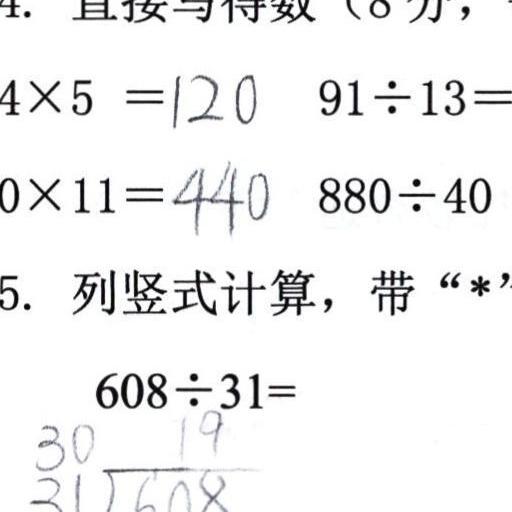 4. 直接写得数（8 分，
4×5 =120 91÷13=
0×11=440 880÷40
5. 列竖式计算，带“*”
608÷31=
30 19
31)608